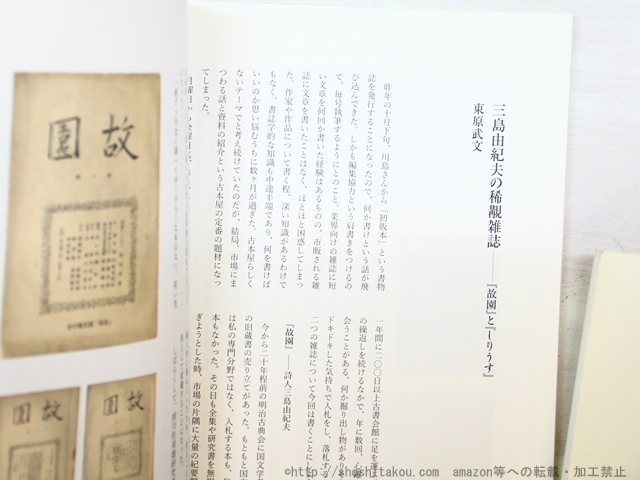 三島由紀夫の稀覯雑誌──『故園』と『しりうす』
東原武文
昨年の十月下旬、川島さんから「初版本」という書物
誌を発行することになったので、何か書けという話が飛
び込んできた。しかも編集協力という肩書きをつけるの
で、毎号執筆するようにとのこと。業界向けの雑誌に短
い文章を何回か書いた経験はあるものの、市販される雑
誌に文章を書いたことはなく、ほとほと困惑してしまっ
た。作家や作品について書く程、深い知識があるわけで
もなく、書誌学的な知識も中途半端であり、何を書けば
いいのか思い悩むうちに数ヶ月が過ぎた。古本屋らしく
ないテーマでと考え続けていたのだが、結局、市場にま
つわる話と資料の紹介という古本屋の定番の題材になっ
てしまった。
一年間に二〇〇日以上古書会館に足を運
の繰返しを続けるなかで、年に数回、心
会うことがある。何か掘り出し物があり
ドキドキした気持ちで入札をし、落札する
二つの雑誌について今回は書くことに
『故園』──詩人三島由紀夫
今から二十年程前の明治古典会に国文学
の旧蔵書の売り立てがあった。もともと国
は私の専門分野ではなく、入札する本も、
本もなかった。その日も全集や研究書を無
ぎようとした時、市場の片隅に大量の紀要
故園
故園
故
©http://shoshitakou.com　amazon等への転載・加工禁止